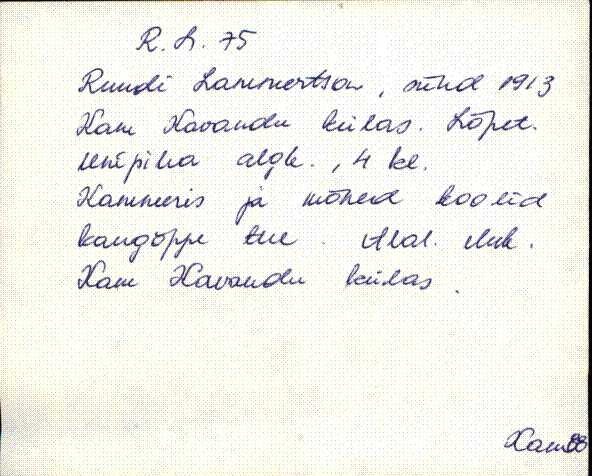 R. L. 75
Ruudi Lammertson, sünd 1913
Kam Kavandu külas. Lõpet.
algk., 4 kl.
Kammeris ja mõned koolid
kaugõppe teel. Alal.
Kam Kavandu külas.
Kam 88